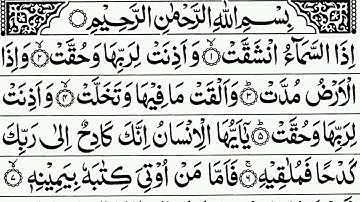 بِسْمِ اللهِ الرَّحْمٰنِ الرَّحِيْمِ
اِذَا السَّمَآءُ انْشَقَّتْ ۙ﴿۱﴾ وَاَذِنَتْ لِرَبِّهَا وَحُقَّتْ ۙ﴿۲﴾ وَاِذَا
الْاَرْضُ مُدَّتْ ۙ﴿۳﴾ وَاَلْقَتْ مَا فِيْهَا وَتَخَلَّتْ ۙ﴿۴﴾ وَاَذِنَتْ
لِرَبِّهَا وَحُقَّتْ ؕ﴿۵﴾ يٰۤاَيُّهَا الْاِنْسَانُ اِنَّكَ كَادِحٌ اِلٰى رَبِّكَ
كَدْحًا فَمُلٰقِيْهِ ۚ﴿۶﴾ فَاَمَّا مَنْ اُوْتِيَ كِتٰبَهٗ بِيَمِيْنِهٖ ۙ﴿۷﴾